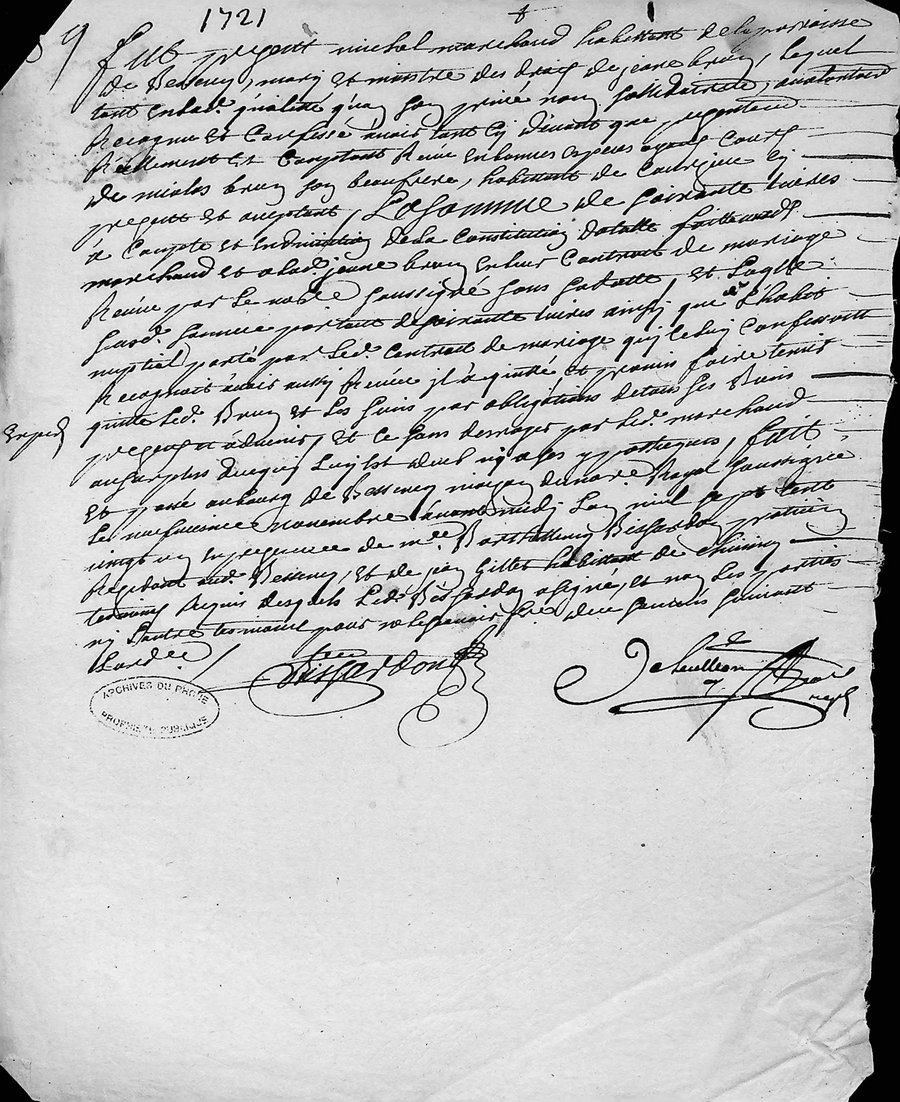 1721
59
fut present michel marchand habittant de la parroisse
de Bessenay, mary et maistre des drois de jeanne brun, lequel
tant en lad. qualitté qu'en son privé nom sollidairement
Recognu et Confessé avoir tant cy devant que presentem
Reellement et Comptant Reçue en bonnes especes ayant Cours
De nicolas brun son beaufrere, habitant de Courzieu cy
present et acceptant, La somme de soixante livres
à Compte et en diminution de la Constitution dotalle faitte aud.
marchand et a lad. jeanne brun en leur Contrat de mariage
Receu par le no.re soussigné sous sa datte, et
lad. somme portant de soixante livres ainsy que L'habit
nuptial porté par led. Contrat de mariage qu'il
Recognoit avoir aussy Receue il a quitté et promis faire tenir
quitte led. Brun et les siens par obligations de tous ses Biens
presents et advenir, et ce sans desroger par led. marchand
Expedi
au surplus ny a ses yppotteques, fait
et passé au bourg de Bessenay maison du no.re Royal soussigné
le neufviesme novembre avant midy L'an mil sept cent
vingt un en presence de m.re Barthellemy Bissardon praticien
Residant aud. Bessenay, et de jean Gillet habittant de
tesmoins Requis desquels led. Bissardon a signé, et non les parties
ny L'autre tesmoin pour ne sçavoir
Bissardon
ARCHIVES DU RHÔNE
PROPRIÉTÉ PUBLIQUE